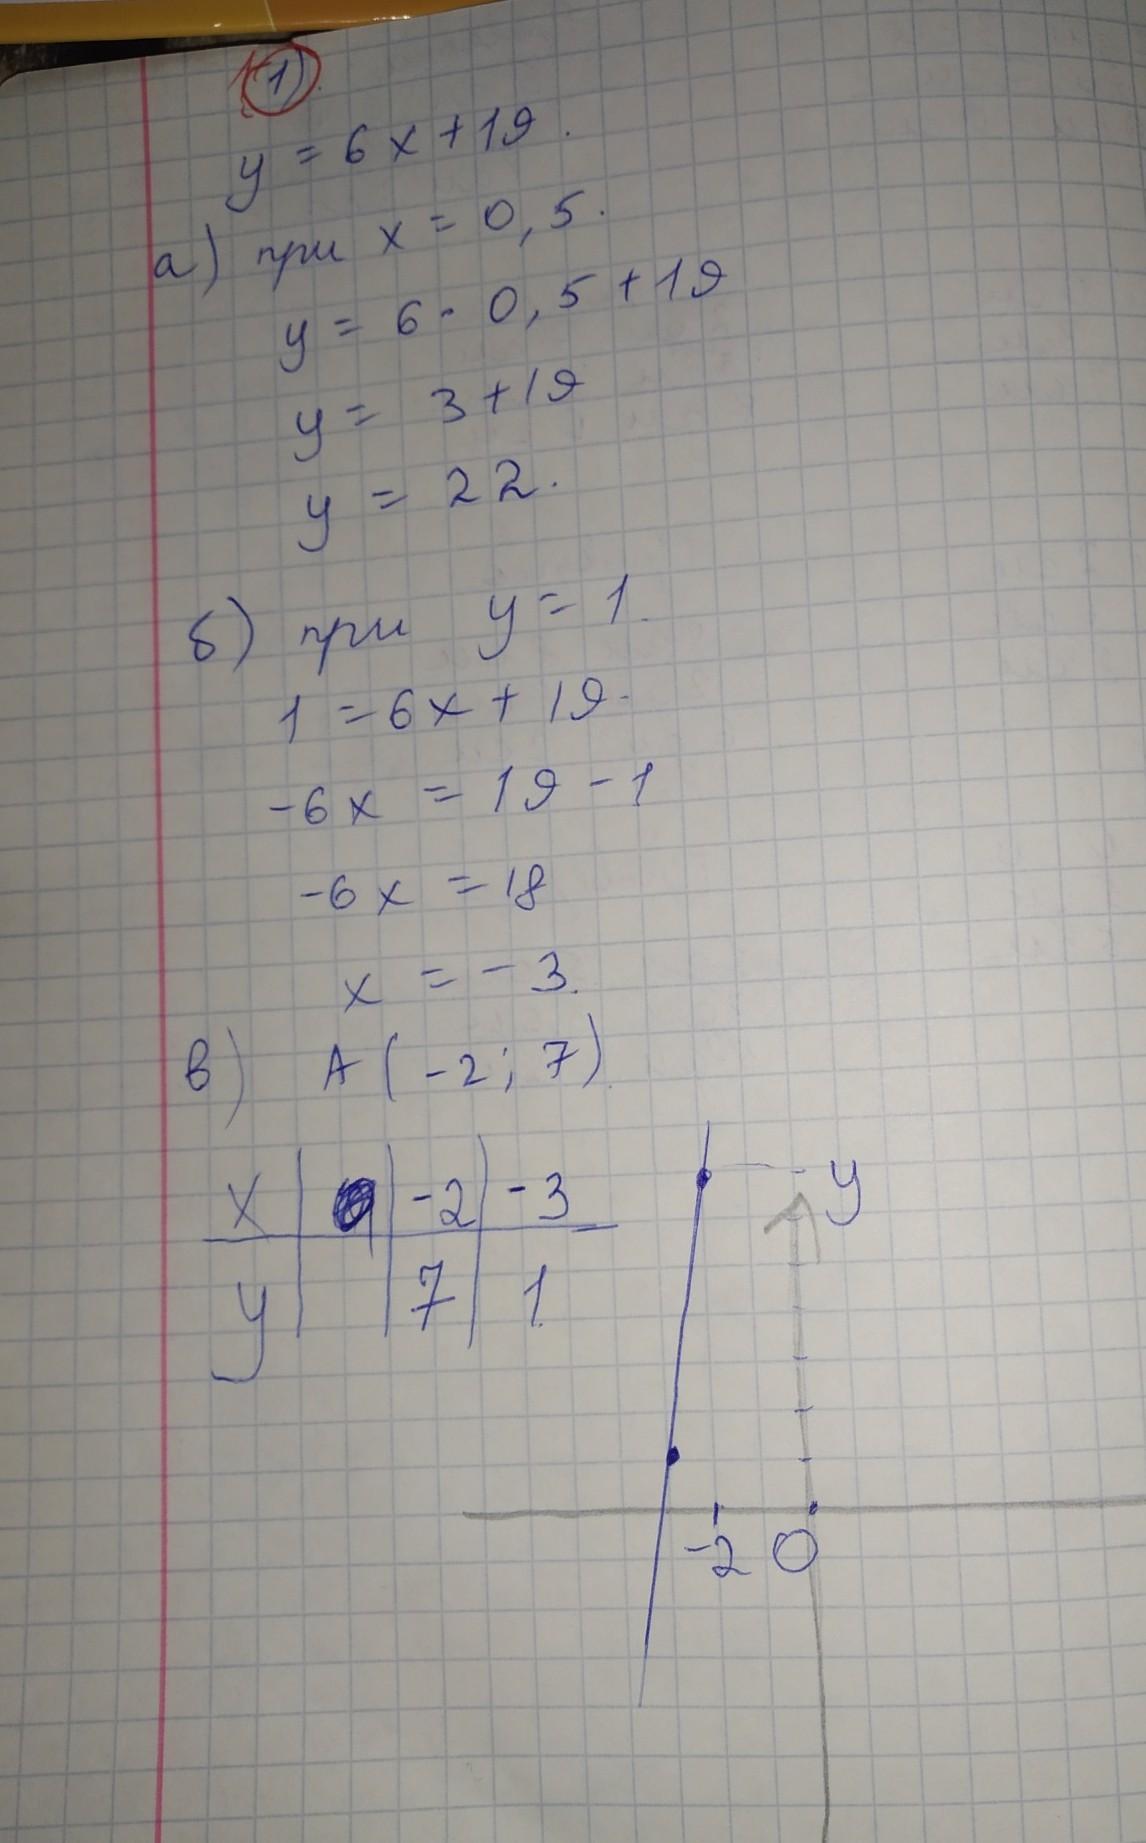 1)
y = 6x + 19.
а) при x = 0,5.
y = 6 · 0,5 + 19
y = 3 + 19
y = 22.
б) при y = 1.
1 = 6x + 19.
-6x = 19 - 1
-6x = 18
x = -3.
в) A(-2; 7).
x | | -2 | -3
y | | 7 | 1.
y
-2 0